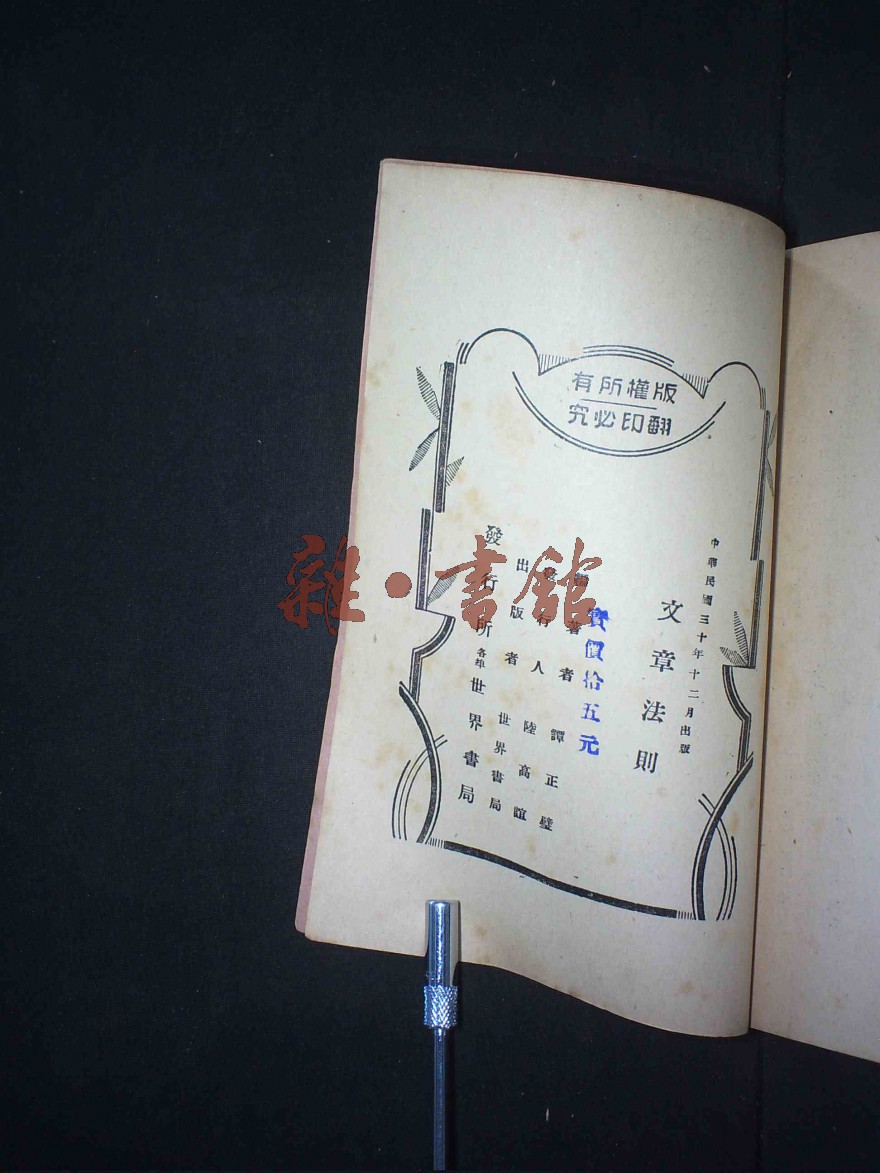 版權所有
翻印必究
中華民國三十年十二月出版
文章法則
實價拾五元
編著者 譚正璧
發行人 陸高誼
出版者 世界書局
發行所 各埠 世界書局
雜·書館